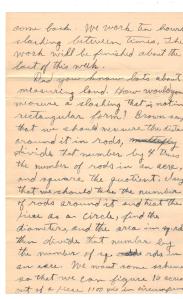 come back. We work ten hours
slashing between times. The
work will be finished about the
last of this week.
Did you know lots about
measuring land. How would you
measure a slashing that is not in
rectangular form? Brown say
that we should measure the distan
around it in rods,
divide that number by 4 then
the number of rods in an acre,
and square the quotient. I say
that we should take the number
of rods around it and treat the
piece as a circle, find the
diameter, and the area in sq rods
then divide that number by
the number of sq rods in
an acre. We want some scheme
so that we can figure 10 acres
out of a piece 1100 in circumfer